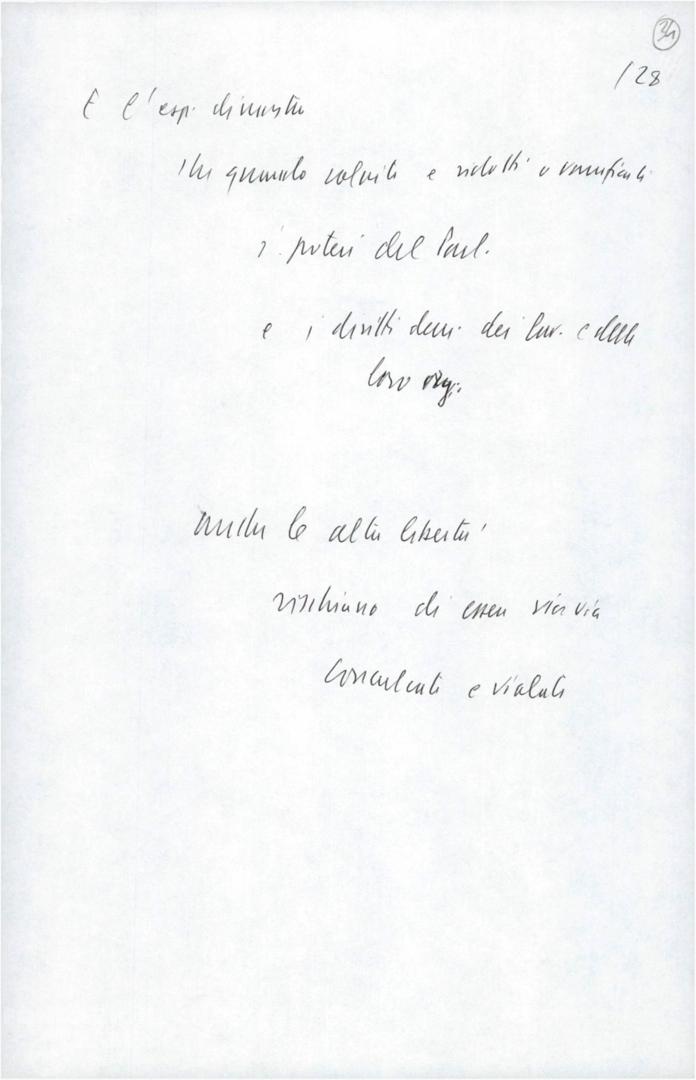 34
/28
E l'esp. dimostra
che quando colpiti e ridotti o vanificati
i poteri del Parl.
e i diritti dem. dei lav. e delle
loro org.
anche le altre libertà
rischiano di essere via via
conculcate e violate